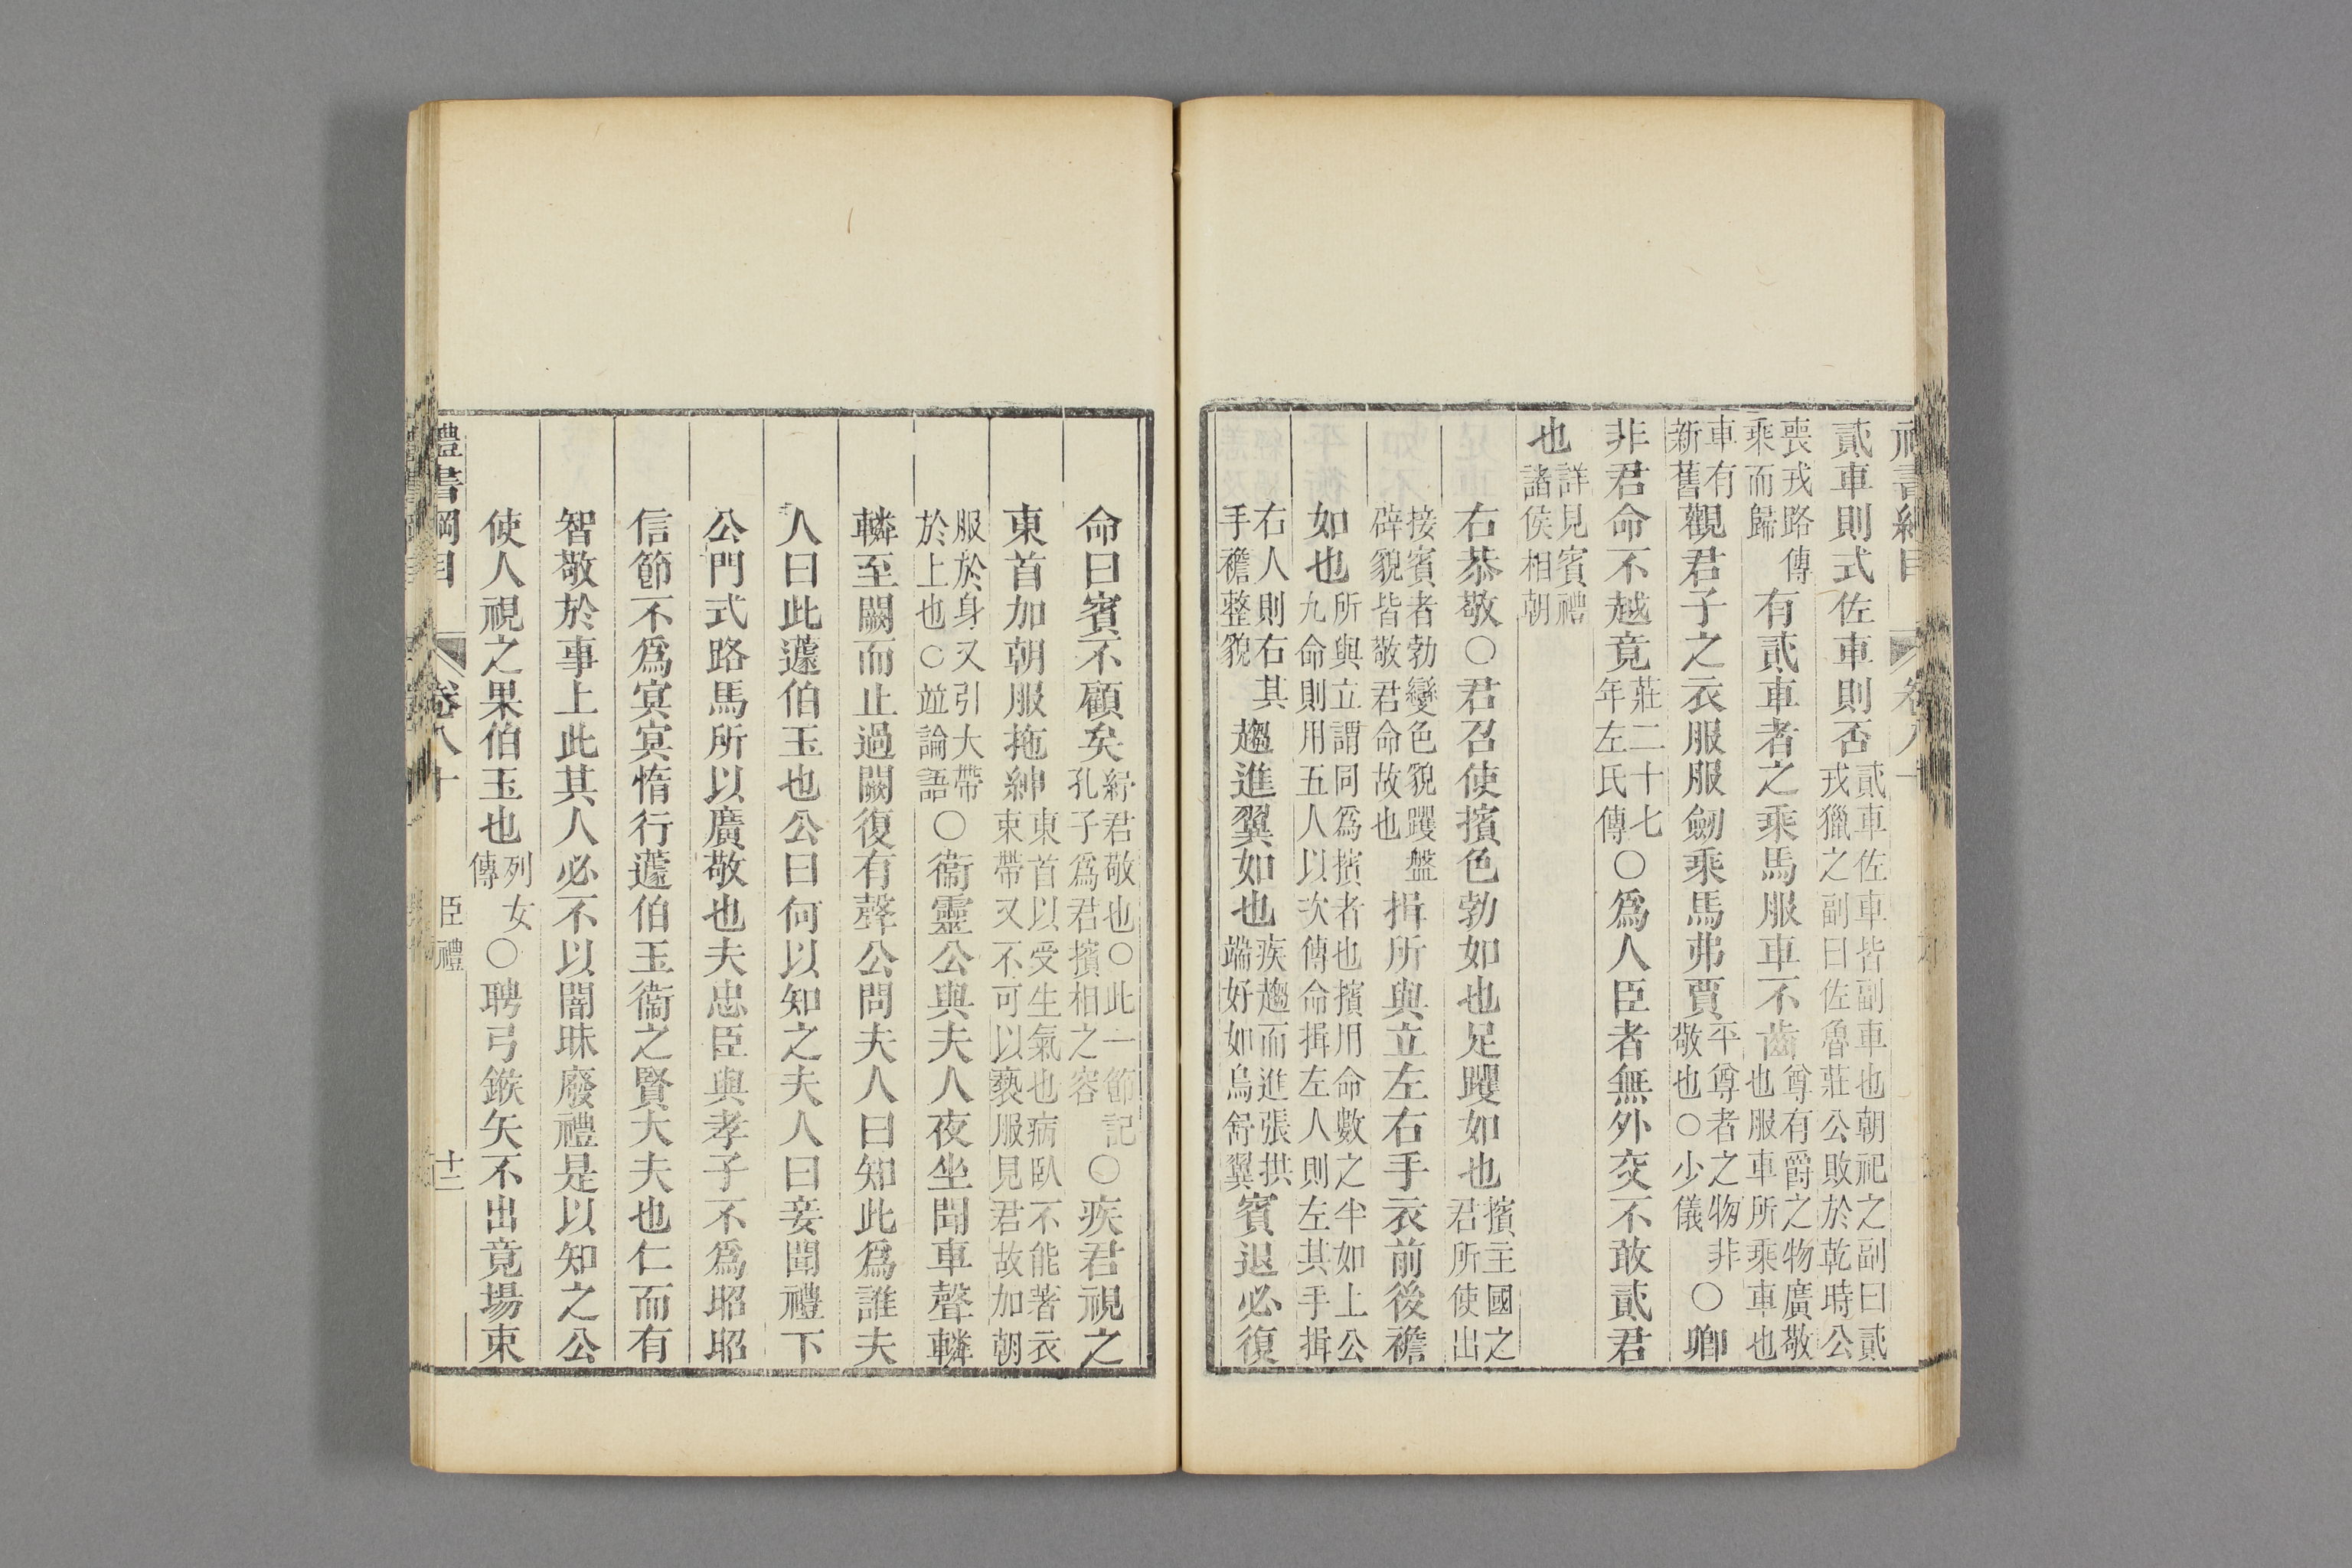 禮書綱目 卷八十
貳車則式佐車則否貳車佐車皆副車也朝祀之副曰貳戎獵之副曰佐魯莊公敗於乾時公
喪戎路傳乘而歸有貳車者之乘馬服車不齒尊有爵之物廣敬也服車所乘車也
車有新舊觀君子之衣服服劒乘馬弗賈平尊者之物非敬也○少儀○卿
非君命不越竟莊二十七年左氏傳○爲人臣者無外交不敢貳君
也詳見賓禮諸侯相朝
右恭敬○君召使擯色勃如也足躩如也擯主國之君所使出
接賓者勃變色貌躩盤辟貌皆敬君命故也揖所與立左右手衣前後襜
如也所與立謂同爲擯者也擯用命數之半如上公九命則用五人以次傳命揖左人則左其手揖
右人則右其手襜整貌趨進翼如也疾趨而進張拱端好如鳥舒翼賓退必復
命曰賓不顧矣紓君敬也○此一節記孔子爲君擯相之容○疾君視之
東首加朝服拖紳東首以受生氣也病臥不能著衣束帶又不可以褻服見君故加朝
服於身又引大帶於上也○並論語○衞靈公與夫人夜坐聞車聲轔
轔至闕而止過闕復有聲公問夫人曰知此爲誰夫
人曰此蘧伯玉也公曰何以知之夫人曰妾聞禮下
公門式路馬所以廣敬也夫忠臣與孝子不爲昭昭
信節不爲冥冥惰行蘧伯玉衞之賢大夫也仁而有
智敬於事上此其人必不以闇昧廢禮是以知之公
使人視之果伯玉也列女傳○聘弓鍭矢不出竟場束
禮書綱目 卷八十 臣禮 十二